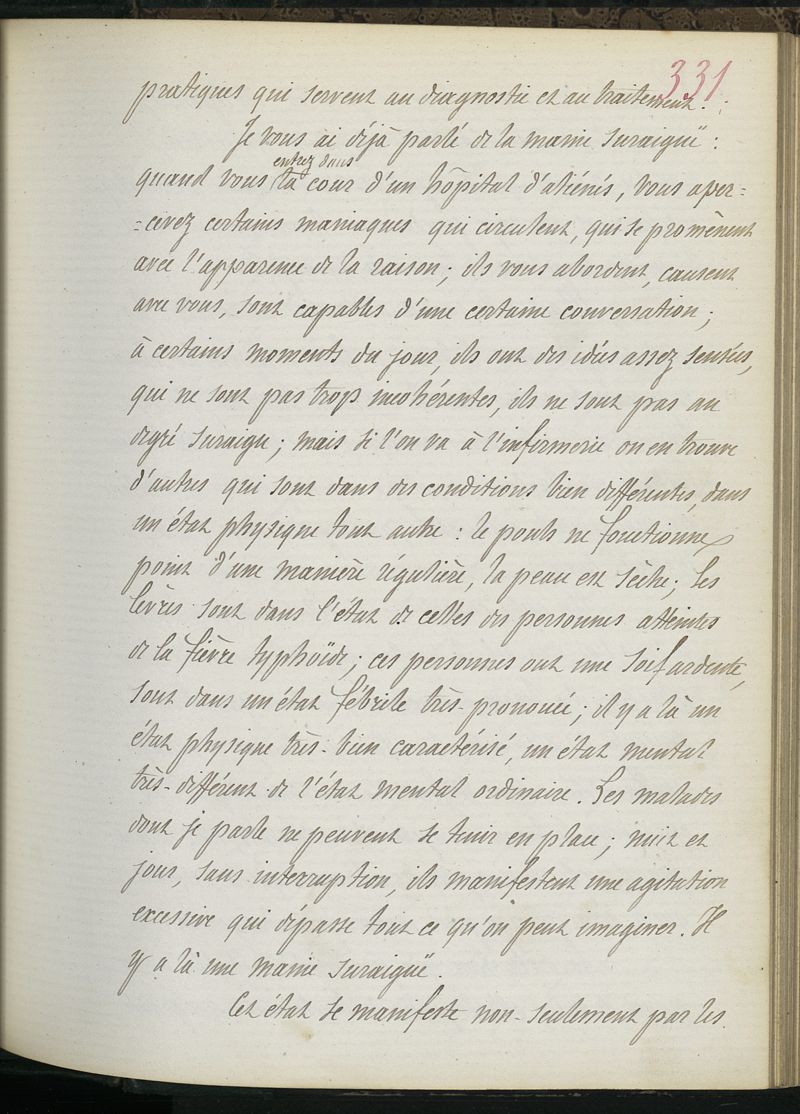 331
pratiques qui servent au diagnostic et au traitement.
Je vous ai déjà parlé de la manie suraiguë :
entrez dans
quand vous la cour d'un hôpital d'aliénés, vous aper=
=cevez certains maniaques qui circulent, qui se promènent
avec l'apparence de la raison ; ils vous abordent, causent
avec vous, sont capables d'une certaine conversation ;
à certains moments du jour, ils ont des idées assez sensées,
qui ne sont pas trop incohérentes, ils ne sont pas au
degré suraigu ; mais si l'on va à l'infirmerie on en trouve
d'autres qui sont dans des conditions bien différentes, dans
un état physique tout autre : le pouls ne fonctionne
point d'une manière régulière, la peau est sèche ; les
lèvres sont dans l'état de celles des personnes atteintes
de la fièvre typhoïde ; ces personnes ont une soif ardente,
sont dans un état fébrile très-prononcé ; il y a là un
état physique très-bien caractérisé, un état mental
très-différent de l'état mental ordinaire. Les malades
dont je parle ne peuvent se tenir en place ; nuit et
jour, sans interruption, ils manifestent une agitation
excessive qui dépasse tout ce qu'on peut imaginer. Il
y a là une manie suraiguë.
Cet état se manifeste non-seulement par les